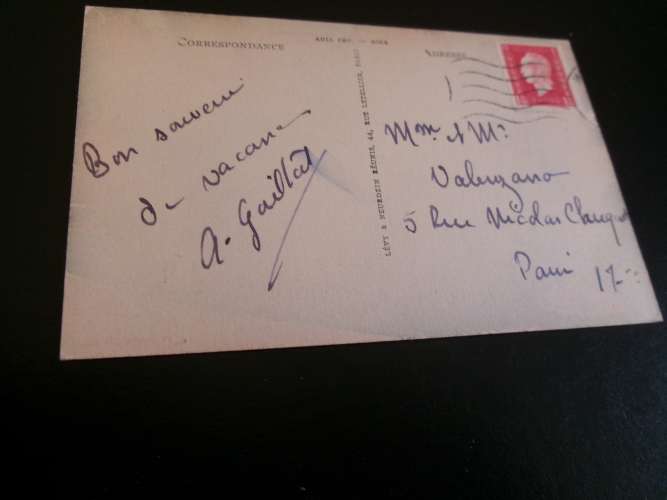 CORRESPONDANCE
ADRESSE
Bon souvenir
de vacances
A. Gaillat
LÉVY & NEURDEIN RÉUNIS, 44, RUE LETELLIER, PARIS
Mme & Mr
Valenzano
5 Rue Nicolas
Paris 17